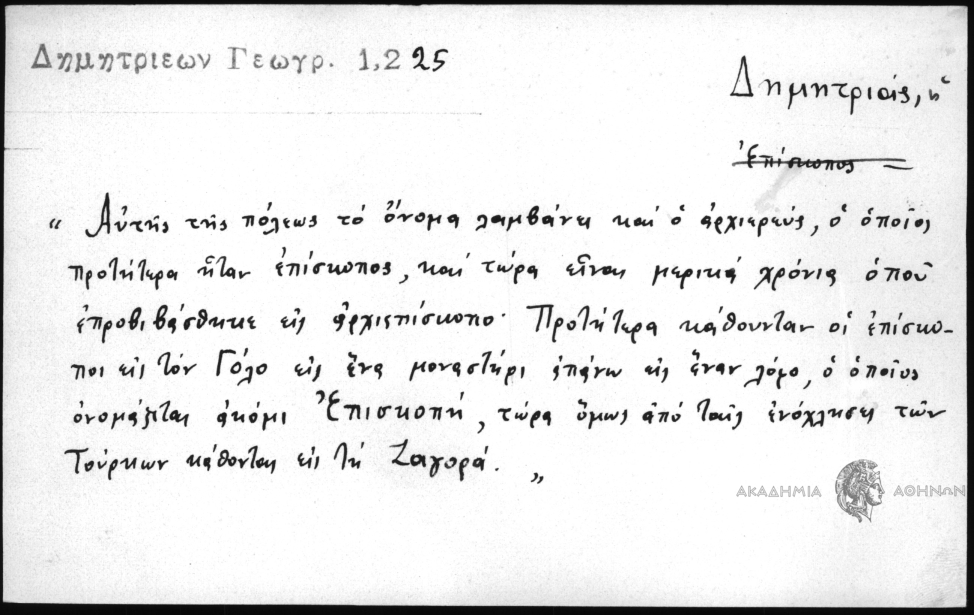 Δημητριεων Γεωγρ. 1,2 25
Δημητριάς, ἡ
ἐπίσκοπος
" Αὐτῆς τῆς πόλεως τὸ ὄνομα λαμβάνει καὶ ὁ ἀρχιερεύς, ὁ ὁποῖος
προτήτερα ἦταν ἐπίσκοπος, καὶ τώρα εἶναι μερικὰ χρόνια ὁποῦ
ἐπροβιβάσθηκε εἰς ἀρχιεπίσκοπο· Προτήτερα κάθουνταν οἱ ἐπίσκο-
ποι εἰς τὸν Γόλο εἰς ἕνα μοναστήρι ἐπάνω εἰς ἕναν λόφο, ὁ ὁποῖος
ὀνομάζεται ἀκόμι Ἐπισκοπή, τώρα ὅμως ἀπὸ ταῖς ἐνόχλησες τῶν
Τούρκων κάθονται εἰς τὴ Ζαγορά. "
ΑΚΑΔΗΜΙΑ ΑΘΗΝΩΝ